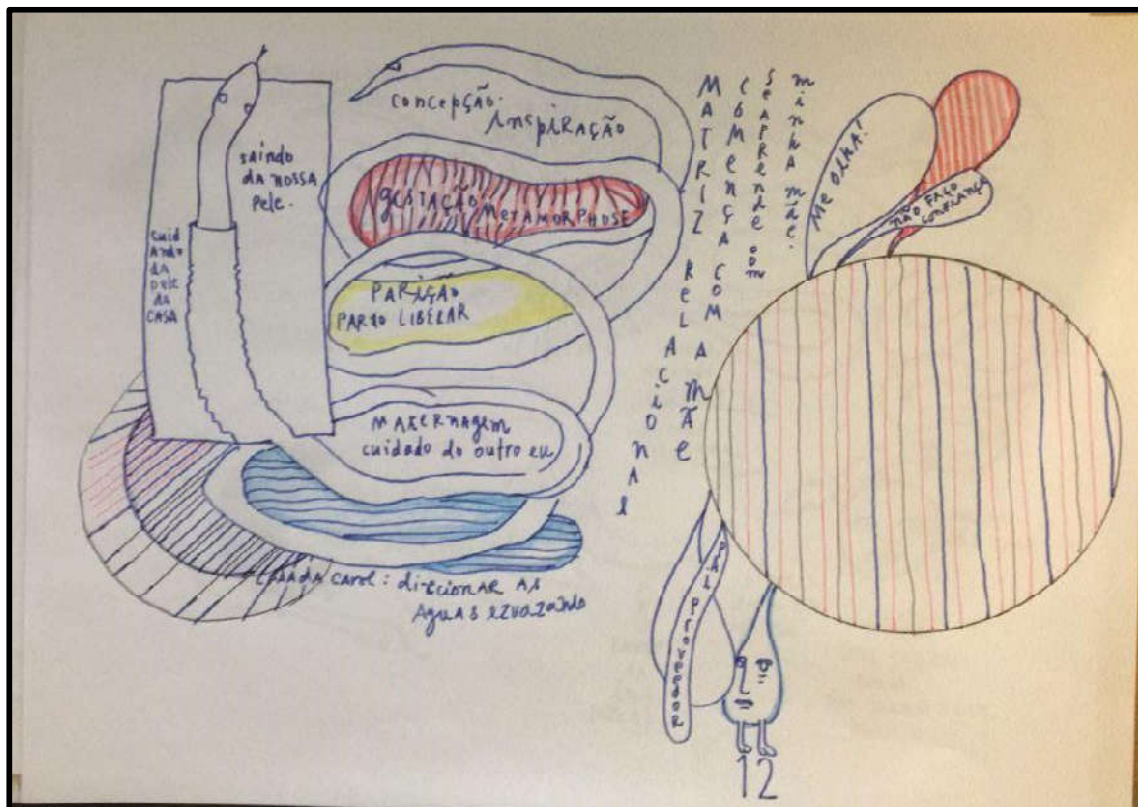 saindo
da nossa
pele.
cuid
ando
da
pele
da
CASA
concepção.
INSPIRAÇÃO
GESTAÇÃO
METAMORPHOSE
PARIÇÃO
PARTO LIBERAR
MATERNAGEM
cuidado do outro eu
CASA DA CAROL: direcionar AS
AGUAS
MATRIZ RELACIONAL
COMENÇA COM A MÃE
SE APRENDE COM
minha mãe.
ME OLHA!
NÃO FAÇO
CONFIANÇA
PAI proveedor
12